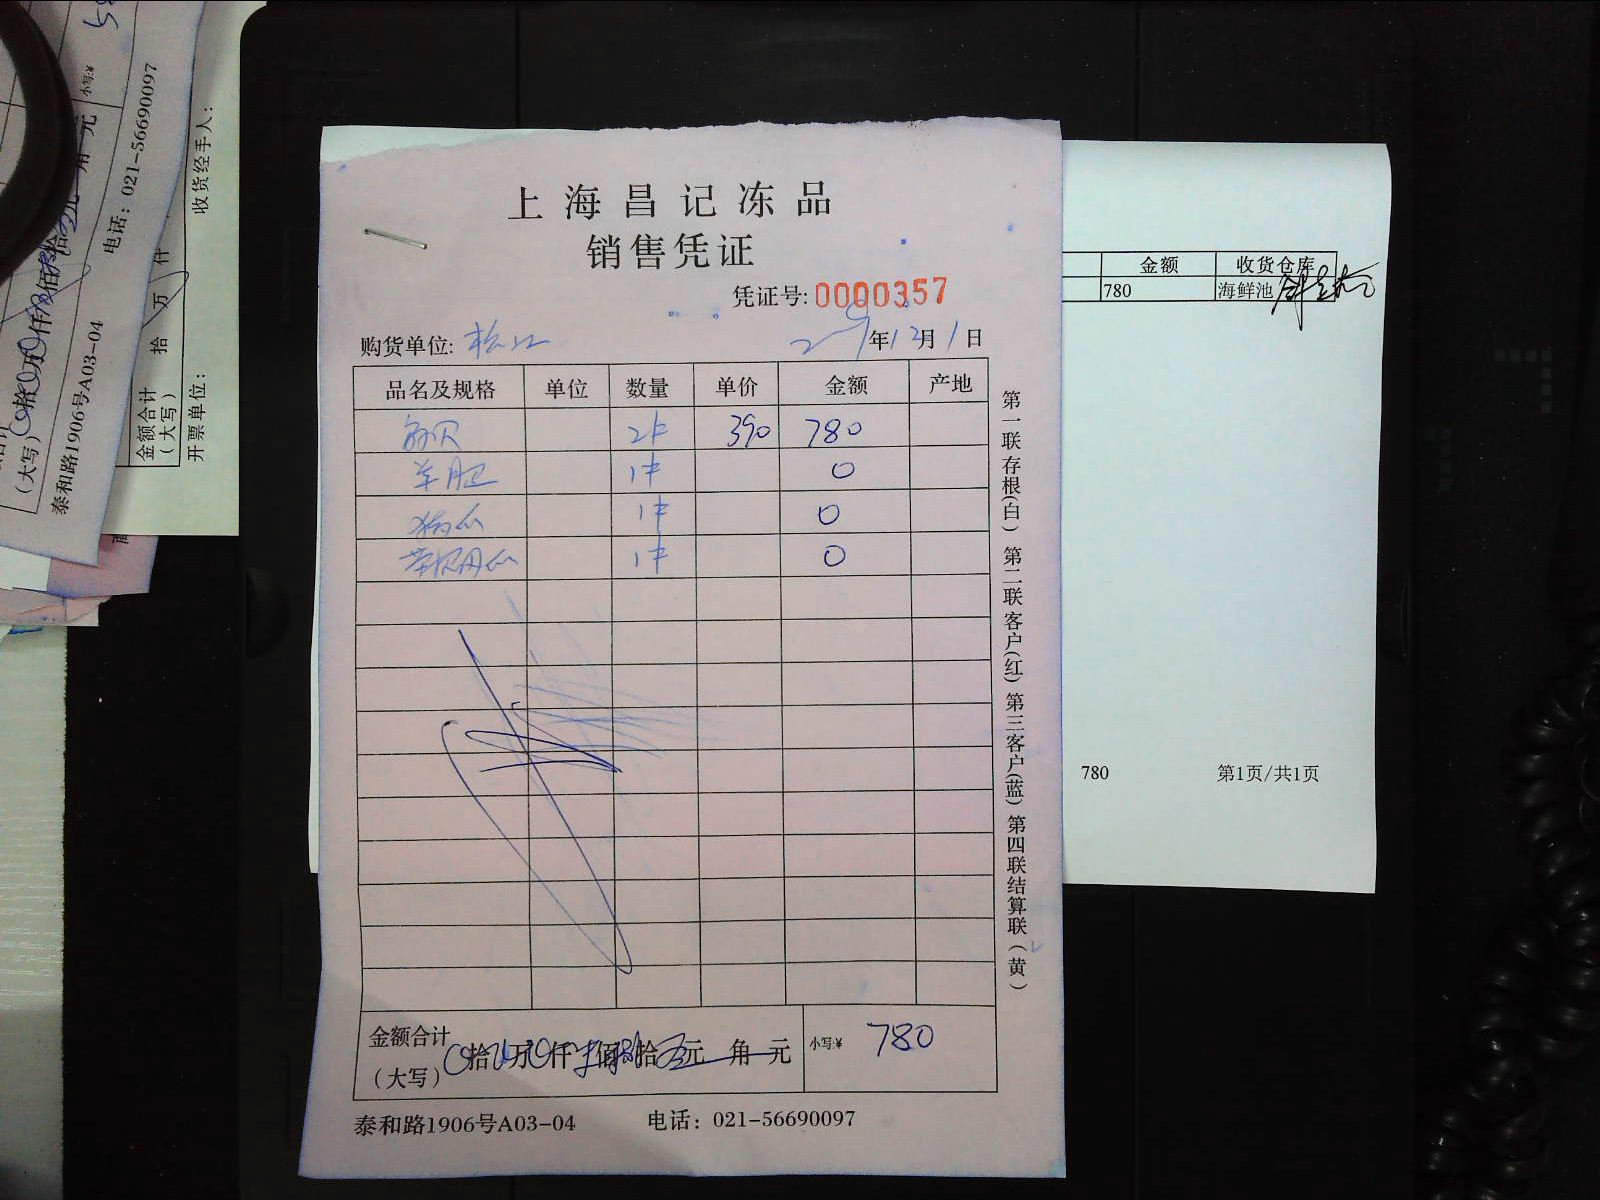 上海昌记冻品
销售凭证
凭证号: 0000357
购货单位: 松江 年12月1日
品名及规格 单位 数量 单价 金额 产地
2件 390 780
羊肥 1件 0
1件 0
1件 0
金额合计
(大写) 拾 万 仟 佰 拾 元 角 元 小写:¥ 780
泰和路1906号A03-04 电话: 021-56690097
第一联存根(白) 第二联客户(红) 第三客户(蓝) 第四联结算联(黄)
金额 收货仓库
780 海鲜池
780 第1页/共1页
小写:¥
角 元
泰和路1906号A03-04 电话: 021-56690097
(大写)
金额合计
(大写) 拾 万 仟
开票单位: 收货经手人: